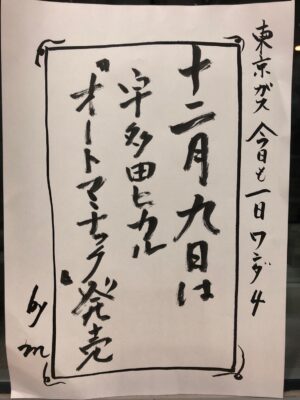 東京ガス 今日も一日ワンダ4
十二月九日は
宇多田ヒカル
“オートマチック”発売
by m